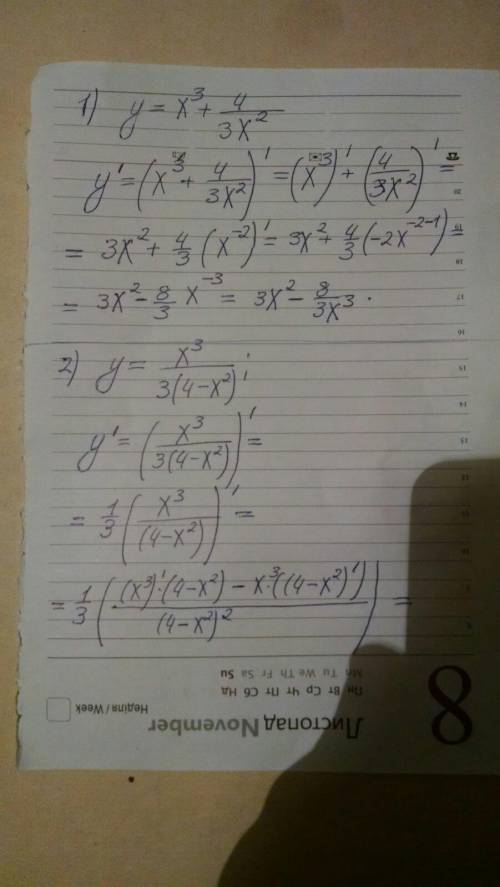 1) y = x³ + 4/(3x²)
y' = (x³ + 4/(3x²))' = (x³)' + (4/(3x²))' =
= 3x² + 4/3 (x⁻²)' = 3x² + 4/3 (-2x⁻²⁻¹) =
= 3x² - 8/3 x⁻³ = 3x² - 8/(3x³).
2) y = x³/(3(4-x²));
y' = (x³/(3(4-x²)))' =
= 1/3 (x³/(4-x²))' =
= 1/3 (((x³)'·(4-x²) - x³·((4-x²)'))/(4-x²)²) =
8
Листопад November
Неділя / Week
Пн Вт Ср Чт Пт Сб Нд
Mo Tu We Th Fr Sa Su
20
19
18
17
16
15
14
13
12
11
10